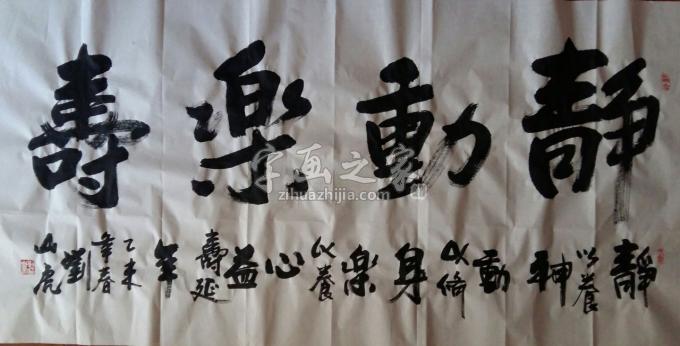 靜動樂壽
靜以養神動以脩身樂以養心益壽延年
乙未年春劉山虎
字画之家
zihuazhijia.com